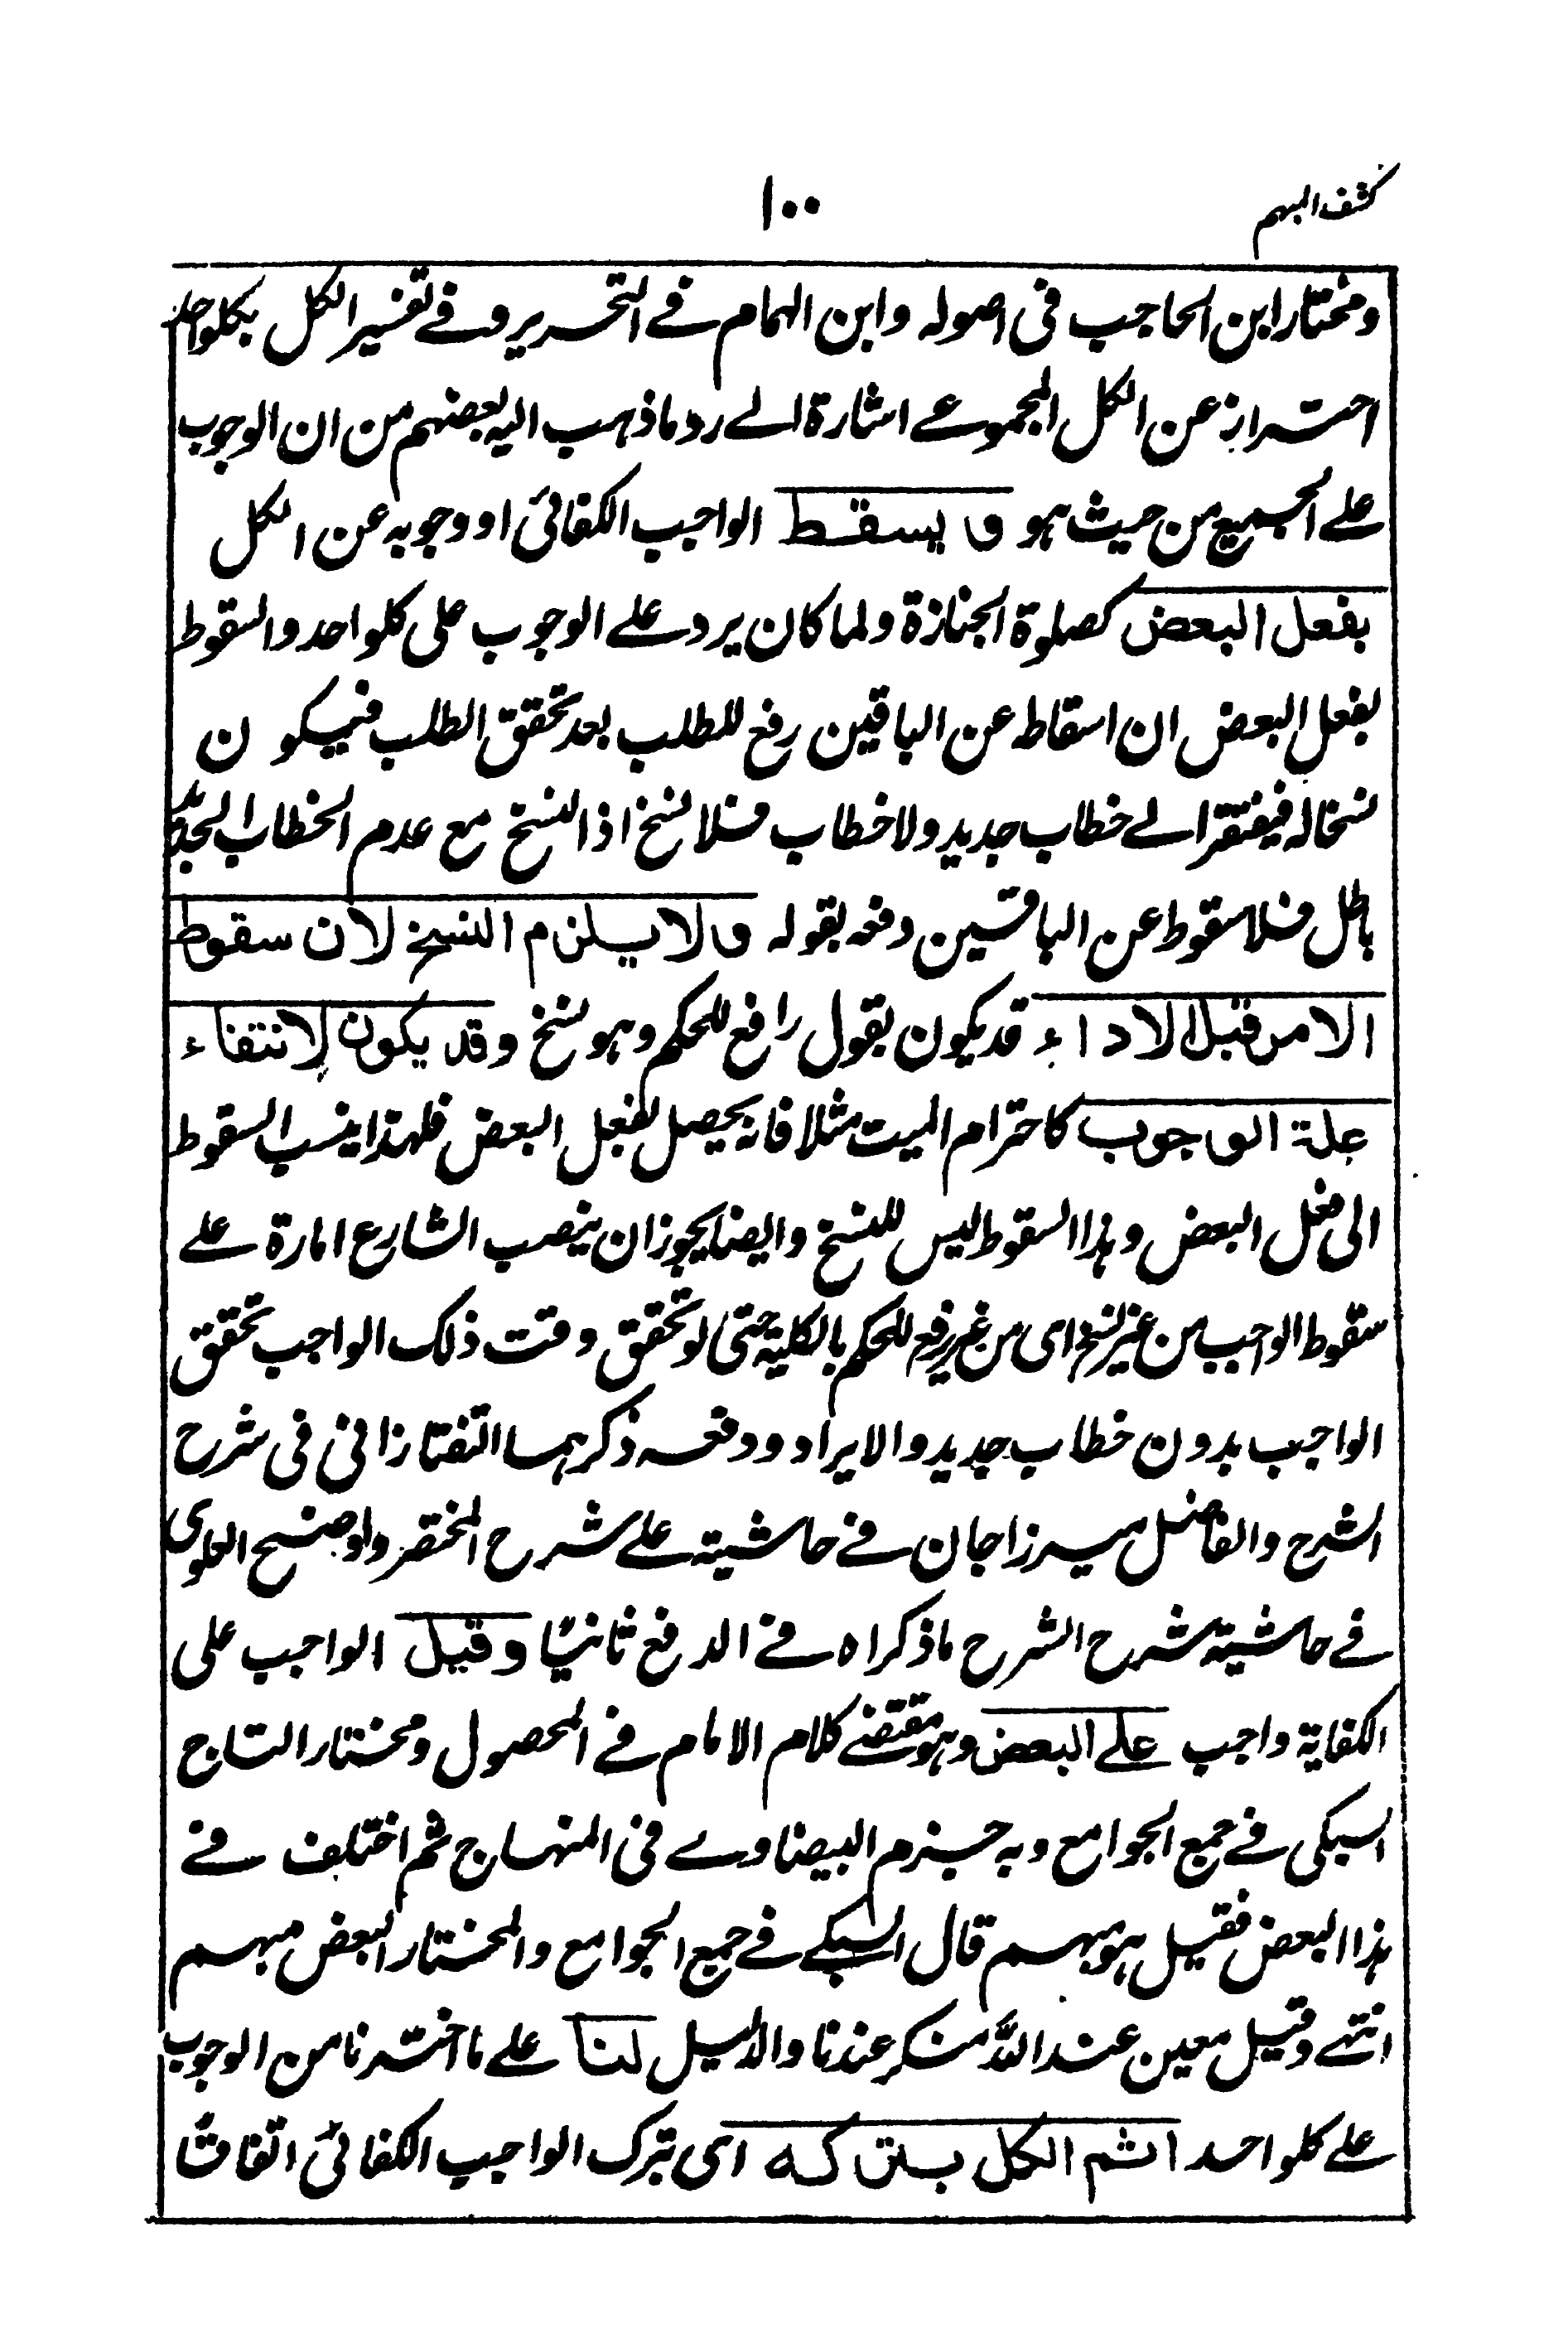 كشف المبهم
١٠٠
ومختار ابن الحاجب فى اصوله وابن الهمام فے التحرير وفے تفسير الكل بكلواحد
احتراز عن الكل المجموعے اشارة الے رد ما ذهب اليه بعضهم من ان الوجوب
علے الجميع من حيث هو ويسقط الواجب الكفائى او وجوبه عن الكل
بفعل البعض كصلوة الجنازة ولما كان يرد علے الوجوب على كلواحد والسقوط
بفعل البعض ان اسقاطه عن الباقين رفع للطلب بعد تحقق الطلب فيكون
نسخا له فيفتقر الے خطاب جديد ولا خطاب فلا نسخ اذ النسخ مع عدم الخطاب الجديد
باطل فلا سقوط عن الباقين دفعه بقوله ولا يلزم النسخ لان سقوط
الامر قبل الاداء قد يكون بقول رافع للحكم وهو نسخ وقد يكون لانتفاء
علة الوجوب كاحترام الميت مثلا فانه يحصل بفعل البعض فلهذا ينسب السقوط
الى فعل البعض وهذا السقوط ليس للنسخ وايضا يجوز ان ينصب الشارع امارة علے
سقوط الواجب من غير نسخ اى من غير رفع للحكم بالكلية حتى لو تحقق وقت ذلك الواجب تحقق
الواجب بدون خطاب جديد والايراد ودفعه ذكرهما التفتازانى فى شرح
الشرح والفاضل ميرزا جان فے حاشيته علے شرح المختصر واوضح العلوى
فے حاشية شرح الشرح ما ذكراه فے الدفع ثانيًا وقيل الواجب على
الكفاية واجب علے البعض وهو مقتضے كلام الامام فے المحصول ومختار التاج
السبكى فے جمع الجوامع وبه جزم البيضاوے فى المنهاج ثم اختلف فے
هذا البعض فقيل هو مبهم قال السبكے فے جمع الجوامع والمختار البعض مبهم
انتهے وقيل معين عند الله منكر عندنا والدليل لنا علے ما اخترنا من الوجوب
علے كلواحد اثم الكل بتركه اى بترك الواجب الكفائى اتفاقًا